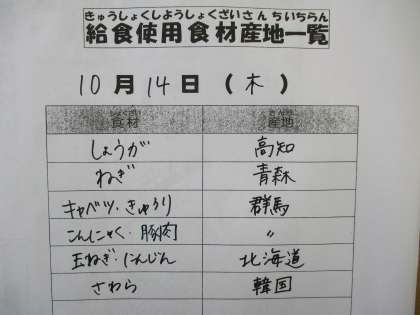 きゅうしょくしようしょくざいさんちいちらん
給食使用食材産地一覧
10月14日(木)
食材 産地
しょうが 高知
ねぎ 青森
キャベツ・きゅうり 群馬
こんにゃく・豚肉 〃
玉ねぎ・にんじん 北海道
さわら 韓国